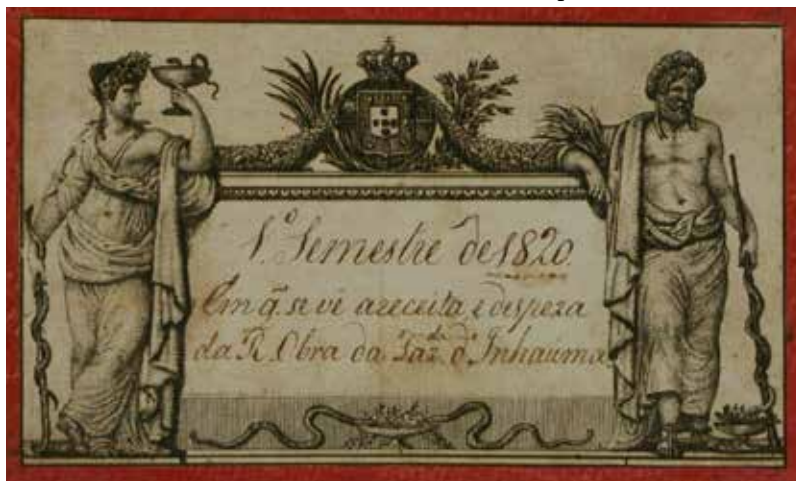 1.º Semestre de 1820.
Em q̃. se vê a receita e despeza
da R. Obra da Faz.da d' Inhaúma